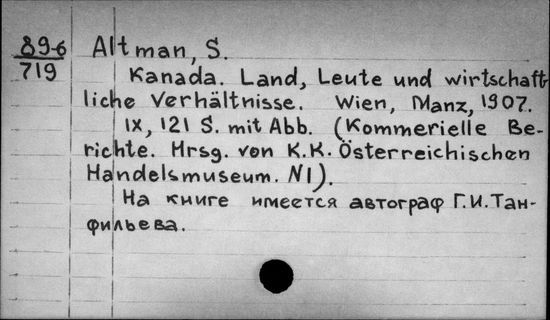 89-6 Altman, S.
719
Kanada. Land, Leute und wirtschaft-
liche Verhältnisse. Wien, Manz, 1907.
IX, 121 S. mit Abb. (Kommerielle Be-
richte. Hrsg. von K.K. Österreichischen
Handelsmuseum. N1).
На книге имеется автограф Г.И.Тан-
фильева.